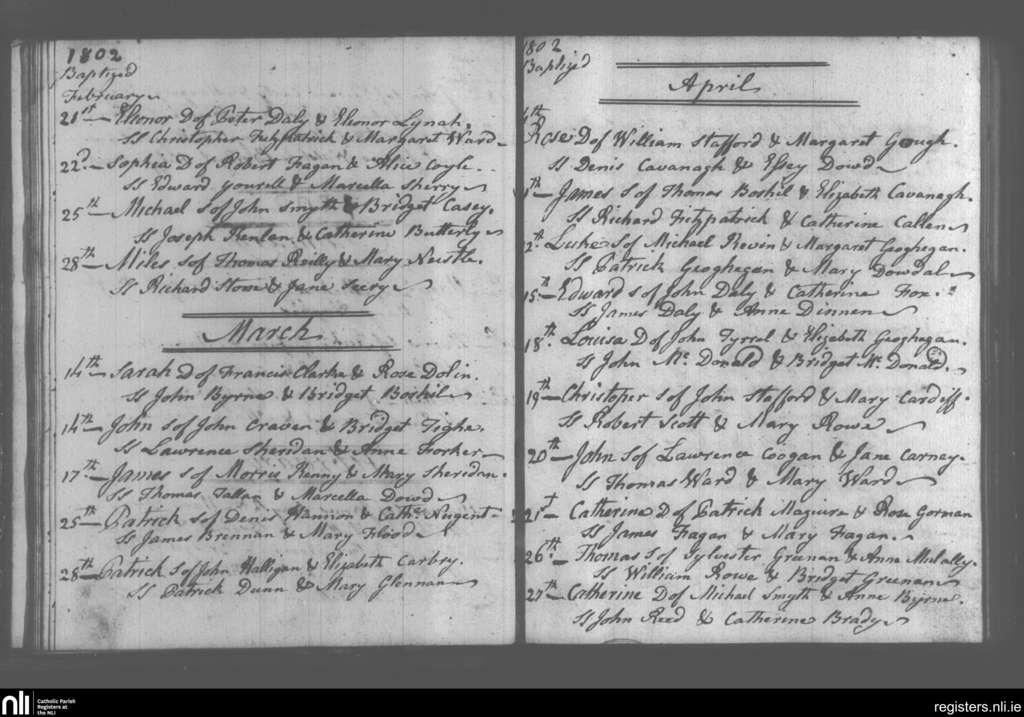 1802
Baptized
February
21st Elenor D of Peter Daly & Elenor Lynah.
Ss Christopher Fitzpatrick & Margaret Ward
22d Sophia D of Robert Fagan & Alice Coyle.
Ss Edward Yourell & Marcella Sherry
25th Michael S of John Smyth & Bridget Casey.
Ss Joseph Kenlan & Catherine Butterly
28th Miles S of Thomas Reilly & Mary
Ss Richard Howe & Jane Seery
March
14th Sarah D of Francis Clarke & Rose Dolin.
Ss John Byrne & Bridget Boshil
14th John S of John Craven & Bridget Tighe.
Ss Lawrence Sheridan & Anne Forker
17th James S of Morris Kenny & Mary Sheridan.
Ss Thomas Tallan & Marcella Dowd
25th Patrick S of Denis Hannon & Cathe. Nugent
Ss James Brennan & Mary Flood
28th Patrick S of John Halligan & Elizabeth Carbry.
Ss Patrick Dunn & Mary Glennan
1802
Baptized
April
4th
Rose D of William Stafford & Margaret Gough.
Ss Denis Cavanagh & Essey Dowd
James S of Thomas Boshil & Elizabeth Cavanagh.
Ss Richard Fitzpatrick & Catherine Callen
Luke S of Michael Kevin & Margaret Geoghegan.
Ss Patrick Geoghegan & Mary Dowdal
15th Edward S of John Daly & Catherine Fox.
Ss James Daly & Anne Dinnen
18th. Louisa D of John Tyrrel & Elizabeth Geoghegan.
Ss John Mc. Donald & Bridget Mc. Donald.
19th Christoper S of John Stafford & Mary Cardiff.
Ss Robert Scott & Mary Rowe
20th John S of Lawrence Coogan & Jane Carney.
Ss Thomas Ward & Mary Ward
21st Catherine D of Patrick Maguire & Rose Gorman
Ss James Fagan & Mary Fagan.
26th. Thomas S of Sylvester Greenan & Anne Mulally.
Ss William Rowe & Bridget Greenan
27th Catherine D of Michael Smyth & Anne Byrne.
Ss John Reed & Catherine Brady
nli
Catholic Parish
Registers at
the NLI
registers.nli.ie